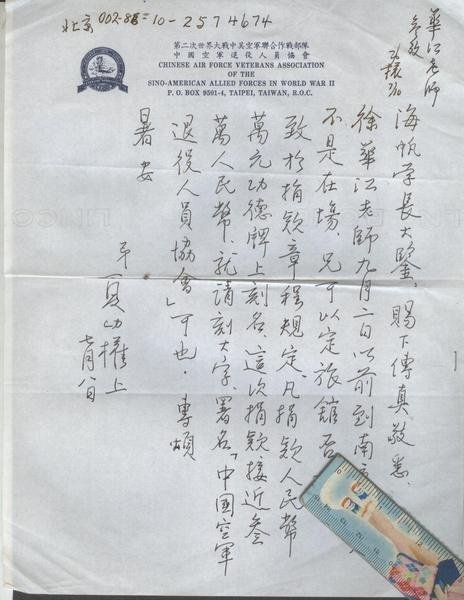 北京 002-86-10-2574674
華江老師
參考
7/10
第二次世界大戰中美空軍聯合作戰部隊
中國空軍退役人員協會
CHINESE AIR FORCE VETERANS ASSOCIATION
OF THE
SINO-AMERICAN ALLIED FORCES IN WORLD WAR II
P. O. BOX 9501-4, TAIPEI, TAIWAN, R.O.C.
海帆学長大鑒:賜下傳真敬悉.
徐華江老師九月二日以前到南
不是在場,兄可以定旅館否
致於捐欵章程規定,凡捐欵人民幣
萬元功德牌上刻名.這次捐欵接近叁
萬人民幣、就請刻大字署名「中國空軍
退役人員協會」可也.專頌
暑安
弟夏功權上
七月八日